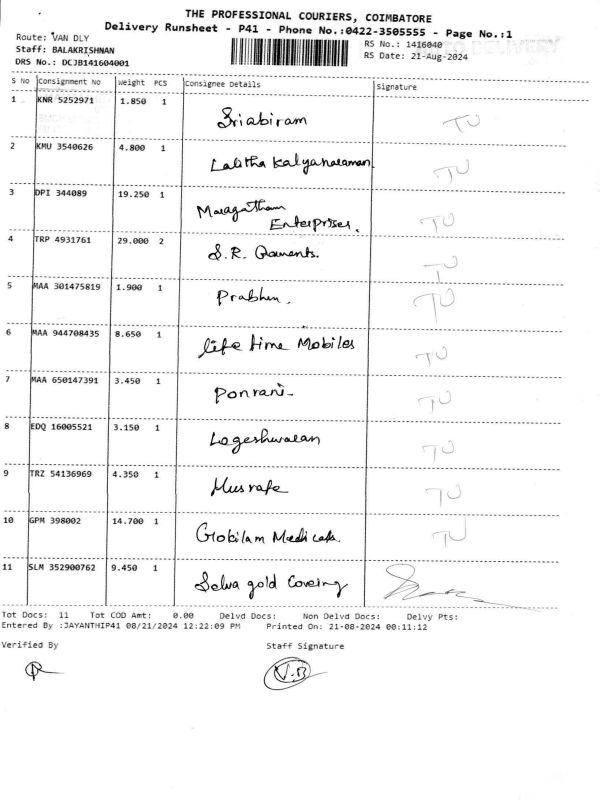 THE PROFESSIONAL COURIERS, COIMBATORE
Delivery Runsheet - P41 - Phone No.:0422-3505555 - Page No.:1
Route: VAN DLY
Staff: BALAKRISHNAN
DRS No.: DCJB141604001
RS No.: 1416040
RS Date: 21-Aug-2024
S No Consignment No Weight PCS Consignee Details Signature
1 KNR 5252971 1.850 1 Sriabiram TU
2 KMU 3540626 4.800 1 Lalitha Kalyanaraman TU
3 DPI 344089 19.250 1 Maragatham
Enterprises. TU
4 TRP 4931761 29.000 2 S.R. Garments. TU
5 MAA 301475819 1.900 1 Prabhu. TU
6 MAA 944708435 8.650 1 life time Mobiles TU
7 MAA 650147391 3.450 1 Ponrani- TU
8 EDQ 16005521 3.150 1 Logeshwaran TU
9 TRZ 54136969 4.350 1 Musrafe TU
10 GPM 398002 14.700 1 Gokilam Medicals. TU
11 SLM 352900762 9.450 1 Selva gold Covering
Tot Docs: 11 Tot COD Amt: 0.00 Delvd Docs: Non Delvd Docs: Delvy Pts:
Entered By :JAYANTHIP41 08/21/2024 12:22:09 PM Printed On: 21-08-2024 00:11:12
Verified By Staff Signature
V.B